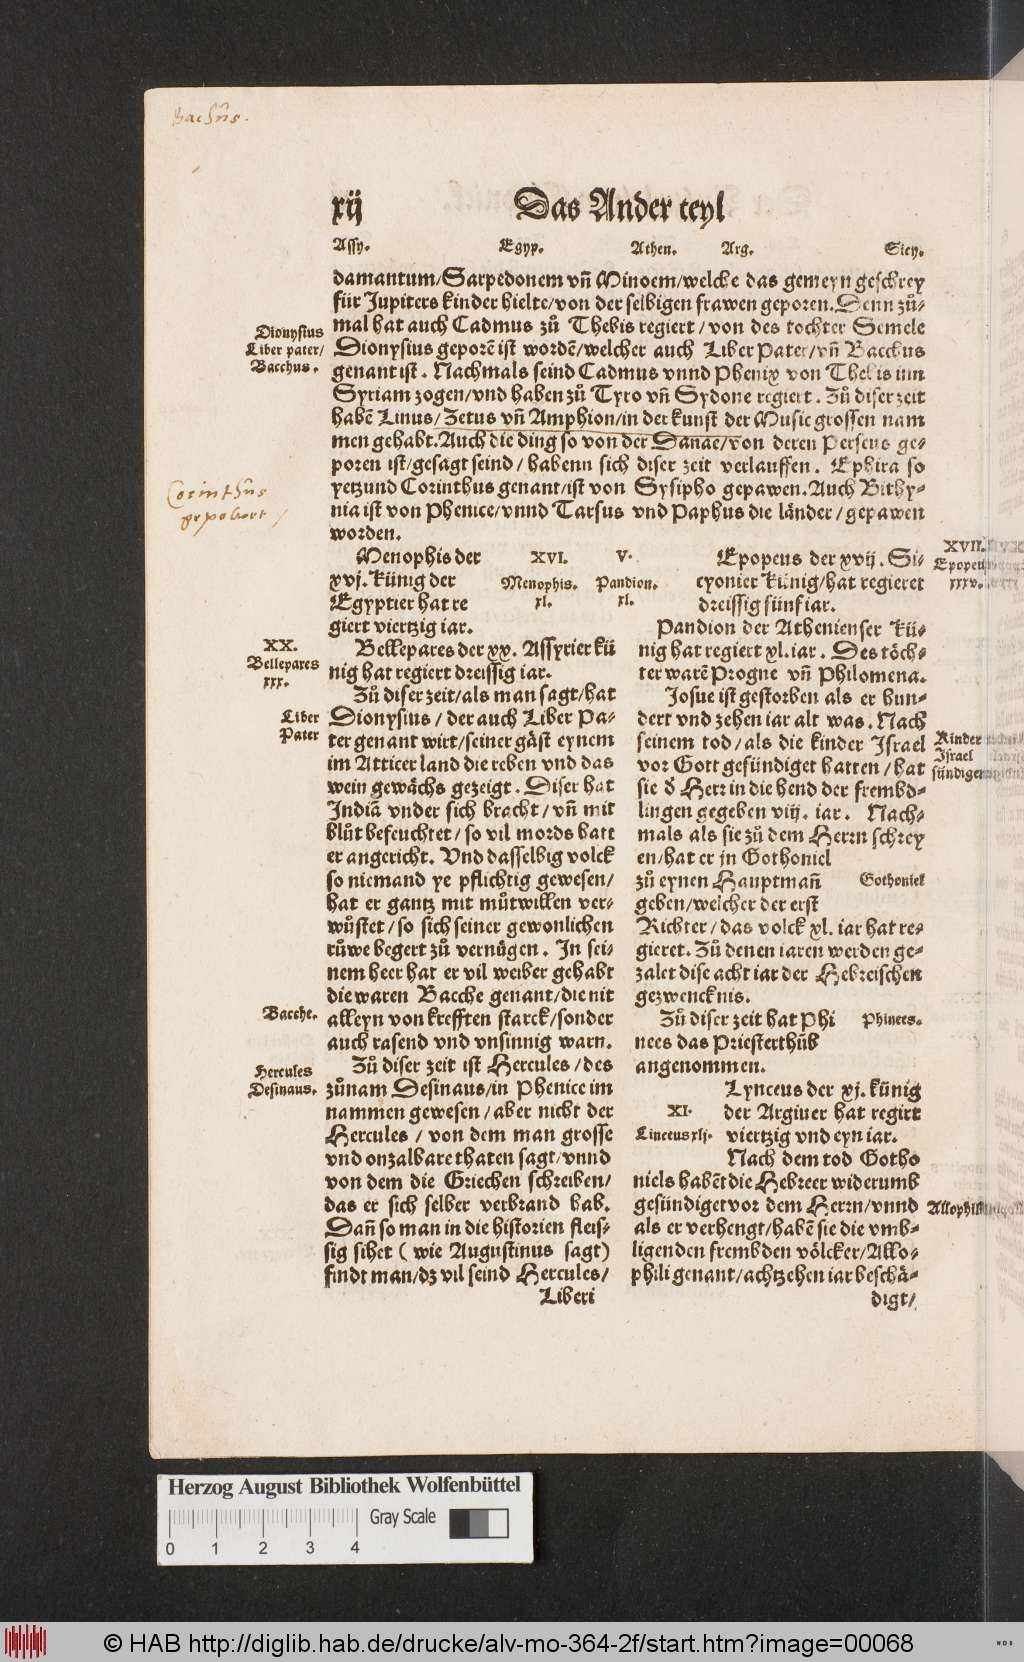 Bachūs.
xij
Das Ander teyl
Assy.
Egyp.
Athen.
Arg.
Sicy.
damantum/Sarpedonem vñ Minoem/welche das gemeyn geschrey
für Jupiters kinder hielte/von der selbigen frawen geporen. Denn zů⸗
mal hat auch Cadmus zů Thebis regiert/von des tochter Semele
Dionysius geporẽ ist wordẽ/welcher auch Liber Pater/vñ Bacchus
genant ist. Nachmals seind Cadmus vnnd Phenix von Thebis inn
Syriam zogen/vnd haben zů Tyro vñ Sydone regiert. Zů diser zeit
habẽ Linus/Zetus vñ Amphion/in der kunst der Music grossen nam
men gehabt. Auch die ding so von der Danae/von deren Perseus ge⸗
poren ist/gesagt seind/habenn sich diser zeit verlauffen. Ephira so
yetzund Corinthus genant/ist von Sysipho gepawen. Auch Bithy⸗
nia ist von Phenice/vnnd Tarsus vnd Paphus die länder/gepawen
worden.
Dionysius
Liber pater/
Bacchus.
Corinthūs
Menophis der
xvj. künig der
Egyptier hat re
giert viertzig iar.
XVI.
Menophis.
xl.
V.
Pandion.
xl.
Bellepares der xx. Assyrier kü
nig hat regiert dreissig iar.
Zů diser zeit/als man sagt/hat
Dionysius/der auch Liber Pa⸗
ter genant wirt/seiner gäst eynem
im Atticer land die reben vnd das
wein gewächs gezeigt. Diser hat
Indiã vnder sich bracht/vñ mit
blůt befeuchtet/so vil mords hatt
er angericht. Vnd dasselbig volck
so niemand ye pflichtig gewesen/
hat er gantz mit můtwillen ver⸗
wüstet/so sich seiner gewonlichen
růwe begert zů vernügen. In sei⸗
nem heer hat er vil weiber gehabt
die waren Bacche genant/die nit
alleyn von krefften starck/sonder
auch rasend vnd vnsinnig warn.
Zů diser zeit ist Hercules/des
zůnam Desinaus/in Phenice im
nammen gewesen/aber nicht der
Hercules/von dem man grosse
vnd onzalbare thaten sagt/vnnd
von dem die Griechen schreiben/
das er sich selber verbrand hab.
Dañ so man in die historien fleis⸗
sig sihet (wie Augustinus sagt)
findt man/dz vil seind Hercules/
Liberi
XX.
Bellepares
xxx.
Liber
Pater
Bacche.
Hercules
Desinaus.
Epopeus der xvij. Si⸗
cyonier künig/hat regieret
dreissig fünf iar.
Pandion der Athenienser kü⸗
nig hat regiert xl. iar. Des töch⸗
ter warẽ Progne vñ Philomena.
Josue ist gestorben als er hun⸗
dert vnd zehen iar alt was. Nach
seinem tod/als die kinder Israel
vor Gott gesündiget hatten/hat
sie ð Herr in die hend der frembd⸗
lingen gegeben viij. iar. Nach⸗
mals als sie zů dem Herrn schrey
en/hat er jn Gothoniel
zů eynen Hauptmañ
geben/welcher der erst
Richter/das volck xl. iar hat re⸗
gieret. Zů denen iaren werden ge⸗
zalet dise acht iar der Hebreischen
gezwencknis.
Zů diser zeit hat Phi
nees das Priesterthůb
angenommen.
Lynceus der xj. künig
der Argiuer hat regirt
viertzig vnd eyn iar.
Nach dem tod Gotho
niels habẽt die Hebreer widerumb
gesündiget vor dem Herrn/vnnd
als er verhengt/habẽ sie die vmb⸗
ligenden frembden völcker/Allo⸗
phili genant/achtzehen iar beschä⸗
digt/
XVII.
xxxv.
Kinder
Israel
Gothoniel
Phinees.
XI.
Linceus xlj.
Herzog August Bibliothek Wolfenbüttel
0 1 2 3 4
Gray Scale
© HAB http://diglib.hab.de/drucke/alv-mo-364-2f/start.htm?image=00068